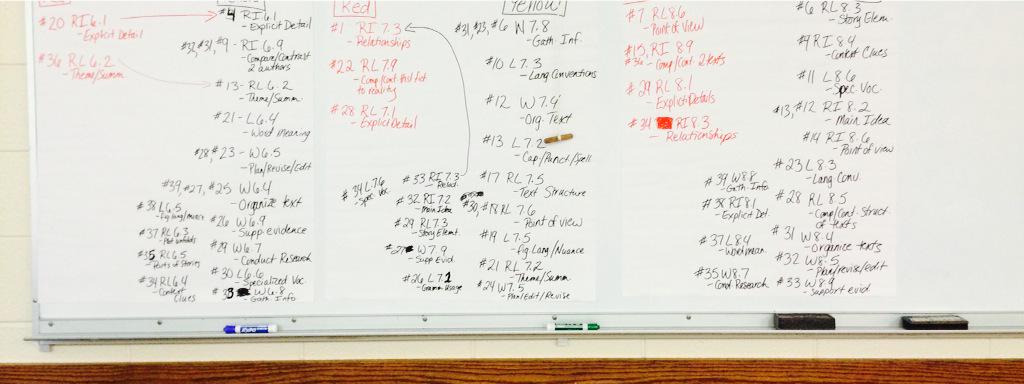 #20 RI 6.1
- Explicit Detail
#36 RL 6.2
- Theme/Summ.
#4 RI 6.1
- Explicit Detail
#32, #31, #9 - RI 6.9
- Compare/Contrast
2 authors
#13 - RL 6.2
- Theme/Summ.
#21 - L 6.4
- Word Meaning
#28, #23 - W 6.5
- Plan/Revise/Edit
#39, #27, #25 W 6.4
- Organize text
#26 W 6.9
- Supp. evidence
#29 W 6.7
- Conduct Research
#30 L 6.6
- Specialized Voc
W 6.8
- Gath Info
#38 L 6.5
- Fig lang/nuance
#37 RL 6.3
- Plot unfolds
#35 RL 6.5
- Parts of Stories
#34 RL 6.4
- Context
Clues
Red
#1 RI 7.3
- Relationships
#22 RL 7.9
- Comp/Cont hist fict
to reality
#28 RL 7.1
- Explicit Detail
#34 L 7.6
- Spec Voc
#33 RI 7.3
- Relati.
#32 RI 7.2
- Main Idea
#29 RL 7.3
- Story Elemt.
#27 W 7.9
- Supp Evid.
#26 L 7.1
- Gramm Usage
Yellow
#31, #23, #6 W 7.8
- Gath. Inf.
#10 L 7.3
- Lang Conventions
#12 W 7.4
- Org. Text
#13 L 7.2
- Cap/Punct/Spell
#17 RL 7.5
- Text Structure
#30, #18 RL 7.6
- Point of view
#19 L 7.5
- fig Lang/Nuance
#21 RL 7.2
- Theme/Summ
#24 W 7.5
- Plan/Edit/Revise
#7 RL 8.6
- Point of View
#15, RI 8.9
#36 - Comp/Cont. 2 texts
#29 RL 8.1
- Explicit Details
#34 RI 8.3
- Relationships
#39 W 8.8
- Gath. Info
#38 RI 8.1
- Explicit Det.
#37 L 8.4
- Word mean
#35 W 8.7
- Cond Research
#6 RL 8.3
- Story Elem.
#9 RI 8.4
- Context Clues
#11 L 8.6
- Spec. Voc.
#13, #12 RI 8.2
- Main Idea
#14 RI 8.6
- Point of view
#23 L 8.3
- Lang Conv.
#28 RL 8.5
- Comp/Cont. Struct
of texts
#31 W 8.4
- Organize texts
#32 W 8.5
- Plan/revise/edit
#33 W 8.9
- Support evid
EXPO